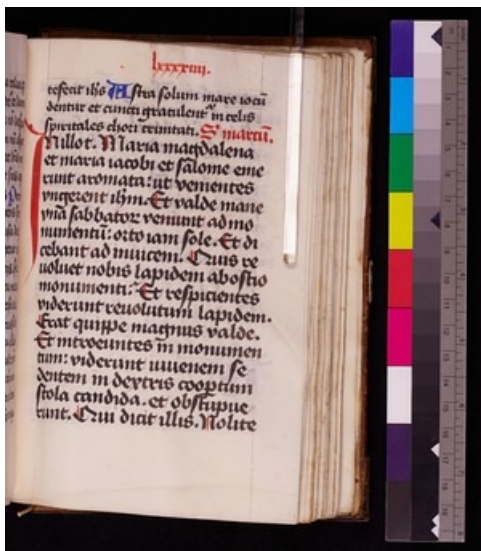 lxxxxiiii.
refecit ihs Astra solum mare iocu
dentur et cuncti gratulent in celis
spiritales chori trinitati. S marcu.
In illo t. Maria magdalena
et maria iacobi et salome eme
runt aromata: ut venientes
vngerent ihm. Et valde mane
vna sabbatoꝝ veniunt ad mo
numentū: orto iam sole. Et di
cebant ad inuicem. Quis re
uoluet nobis lapidem ab ostio
monumenti? Et respicientes
viderunt reuolutum lapidem.
Erat quippe magnus valde.
Et introeuntes in monumen
tum: viderunt iuuenem se
dentem in dextris coopertum
stola candida. et obstupue
runt. Qui dicit illis. Nolite